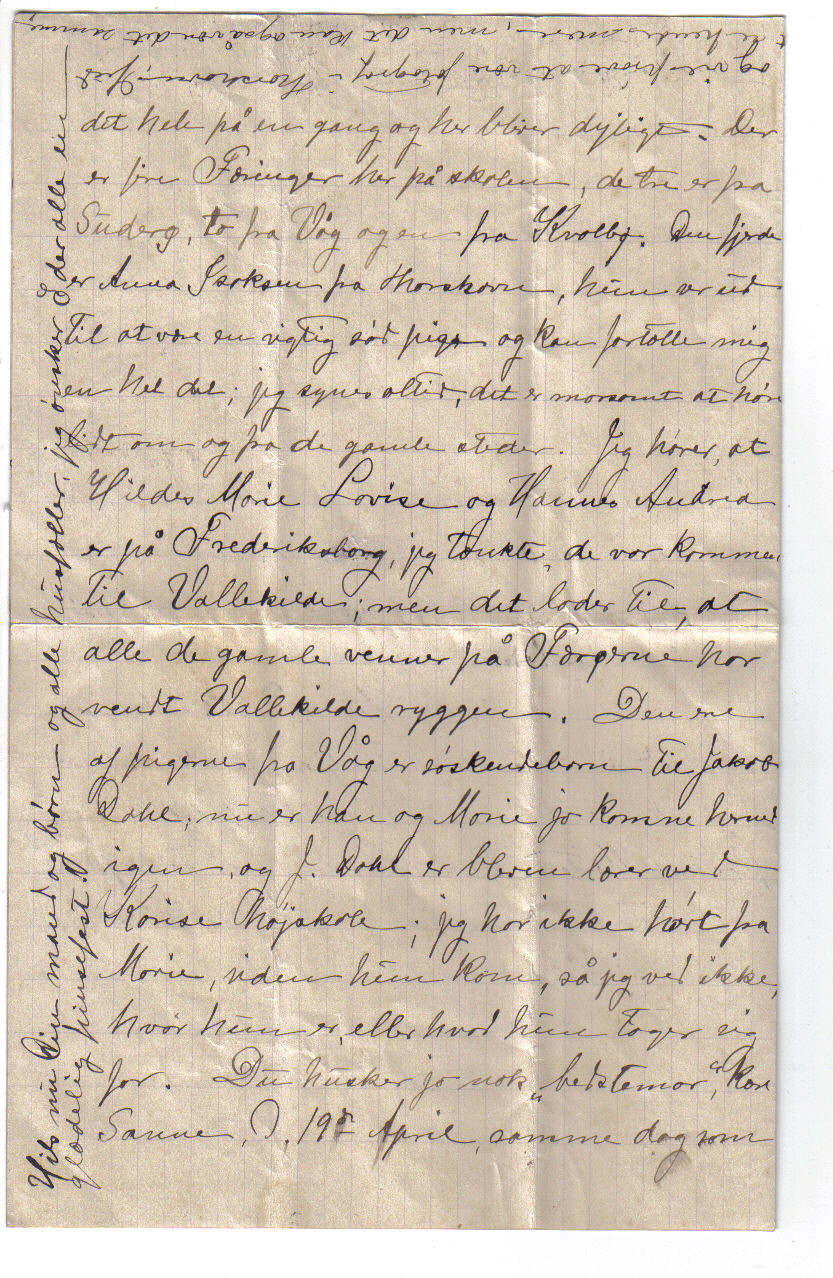 det hele på en gang og her bliver dejligt. Der
er fire Færinger her på skolen, de tre er fra
Suderø, to fra Våg og en fra Kvalbø. Den fjerde
er Anna Isaksen fra Thorshavn, hun ser ud
til at være en rigtig sød pige og kan fortælle mig
en hel del; jeg synes altid, det er morsomt at høre
lidt om og fra de gamle steder. Jeg hører, at
Hildes Marie Lovise og Hannes Andrea
er på Frederiksborg, jeg tænkte, de var kommen
til Vallekilde; men det lader til, at
alle de gamle venner på Færøerne har
vendt Vallekilde ryggen. Den ene
af pigerne fra Våg er søskendebarn til Jakob
Dahl; nu er han og Marie jo komne herned
igen, og J. Dahl er bleven lærer ved
Karise Højskole; jeg har ikke hørt fra
Marie, siden hun kom, så jeg ved ikke,
hvor hun er, eller hvad hun tager sig
for. Du husker jo nok „bedstemor“, kære
Sanne, D. 19de April, samme dag som
Hils nu Din mand og børn og alle husfæller, jeg ønsker Eder alle en
glædelig pinsefest.
og vil prøve at være fotograf i Thorshavn,
mere, men det kan også være det samme